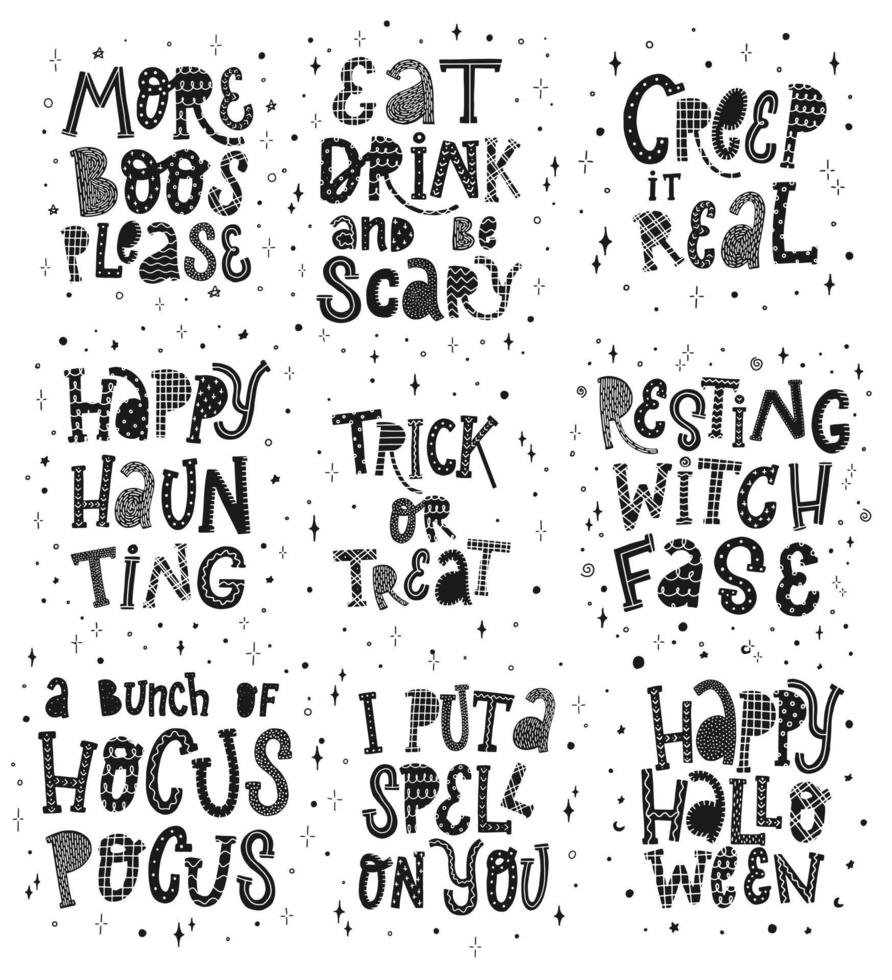 MORE
BOOS
PLEASE
EAT
DRINK
AND BE
SCARY
CREEP
IT
REAL
HAPPY
HAUN
TING
TRICK
OR
TREAT
RESTING
WITCH
FASE
A BUNCH OF
HOCUS
POCUS
I PUT A
SPELL
ON YOU
HAPPY
HALLO
WEEN